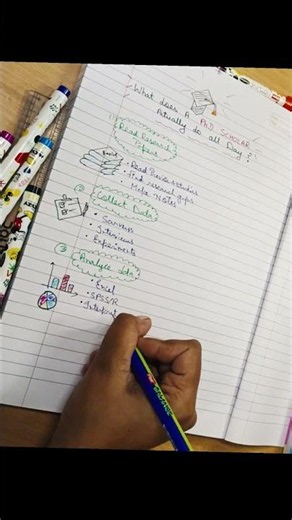 What does A PhD SCHOLAR
Actually do all Day?
①
Read Research
Papers
• Read Previous studies
• Find research gaps
• Make Notes
②
Collect Data
• Surveys
• Interviews
• Experiments
③
Analyze data
• Excel
• SPSS/R
• Interpret